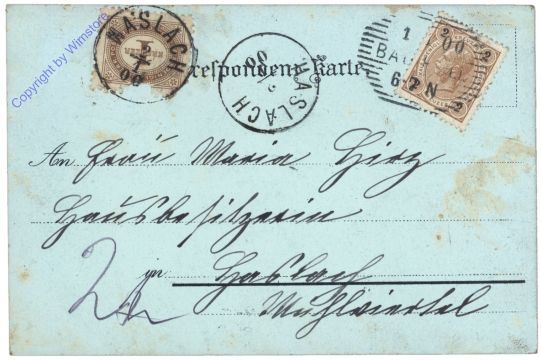 Copyright by Wimstore
HASLACH
00
respondenz-Karte
HASLACH
00
1
00
6-7 N
2 2
2 2
An Frau Maria Hirz
Hausbesitzerin
in Haslach
Mühlviertel